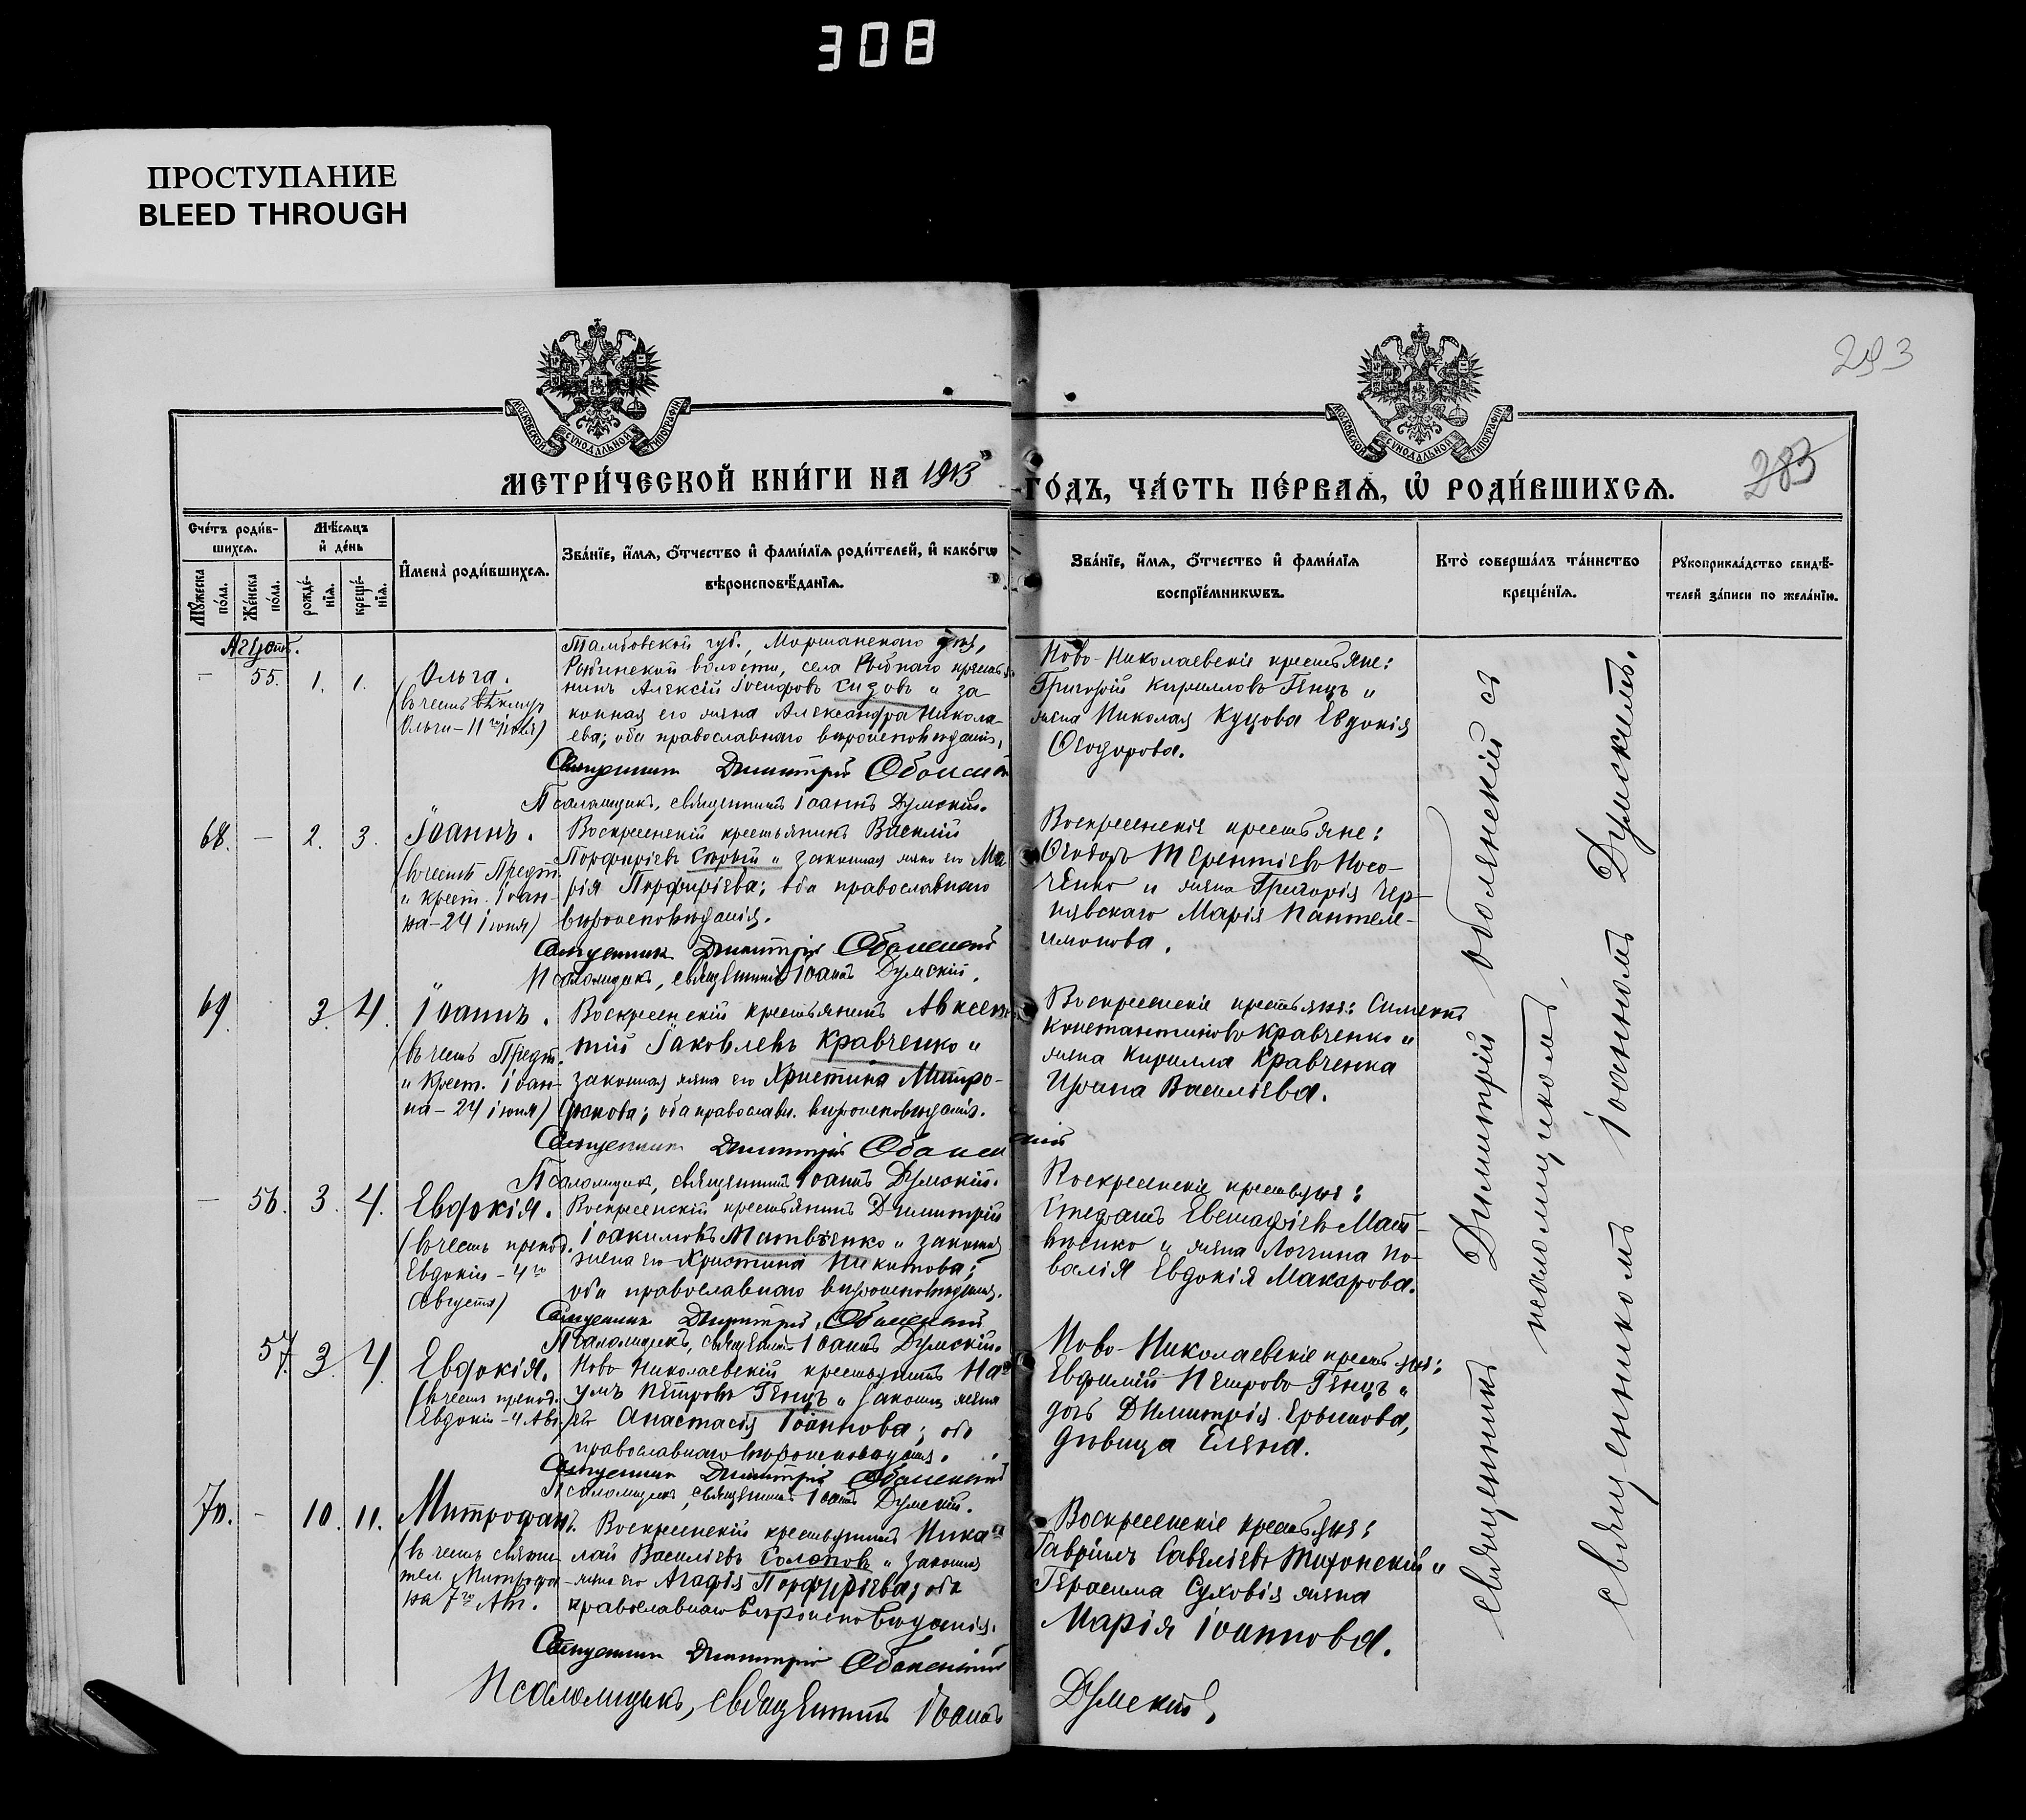 308
ПРОСТУПАНИЕ
BLEED THROUGH
293
283
МОСКОВСКОЙ СѴНОДАЛЬНОЙ ТИПОГРАФІИ
МОСКОВСКОЙ СѴНОДАЛЬНОЙ ТИПОГРАФІИ
МЕТРИ́ЧЕСКОЙ КНИ́ГИ НА 1913 ГО́ДЪ, ЧА́СТЬ ПЕ́РВАѦ, Ѡ҆ РОДИ́ВШИХСѦ.
Сче́тъ роди́в-
шихсѧ.
Мѣ́сѧцъ
и҆ де́нь
И҆мена̀ роди́вшихсѧ.
Зва́нїе, и҆́мѧ, ѻ҆́тчество и҆ фами́лїѧ роди́телей, и҆ како́гѡ
вѣроисповѣ́данїѧ.
Зва́нїе, и҆́мѧ, ѻ҆́тчество и҆ фами́лїѧ
воспрїе́мникѡвъ.
Кто̀ соверша́лъ та́инство
креще́нїѧ.
Рꙋкоприкла́дство свидѣ́-
телей за́писи по жела́нїю.
Мꙋ́жеска
по́ла.
Же́нска
по́ла.
рожде́-
нїѧ.
креще́-
нїѧ.
Августъ.
- 55. 1. 1.
Ольга.
(въ честь
Ольги - 11го іюля)
Тамбовской губ., Моршанскаго уѣз.,
волости, села крестья-
нинъ Алексій Іосифовъ Сизовъ и за-
конная его жена Александра Никола-
ева; оба православнаго вѣроисповѣданія.
Священникъ Димитрій Оболенскій
Псаломщикъ, священникъ Іоаннъ Думскій.
Ново-Николаевскіе крестьяне:
Григорій Кирилловъ Генцъ и
жена Николая Куцова Евдокія
Ѳеодорова.
68. - 2. 3.
Іоаннъ.
(въ честь Предт.
и Крест. Іоан-
на - 24 іюня)
Воскресенскій крестьянинъ Василій
Порфиріевъ и законная жена его Ма-
рія Порфиріева; оба православнаго
вѣроисповѣданія.
Священникъ Димитрій Оболенскій
Псаломщикъ, священникъ Іоаннъ Думскій.
Воскресенскіе крестьяне:
Ѳеодоръ Терентіевъ Носо-
ченко и жена Григорія Чер-
нявскаго Марія Пантеле-
имонова.
69. 3. 4.
Іоаннъ.
(въ честь Предт.
и Крест. Іоан-
на - 24 іюня)
Воскресенскій крестьянинъ Авксен-
тій Іаковлевъ Кравченко и
законная жена его Христина Митро-
фанова; оба правосл. вѣроисповѣданія.
Священникъ Димитрій Оболенскій
Псаломщикъ, священникъ Іоаннъ Думскій.
Воскресенскіе крестьяне: Симеонъ
Константиновъ Кравченко и
жена Кирилла Кравченка
Ирина Василіева.
- 56. 3. 4.
Евдокія.
(въ честь препод.
Евдокіи - 4го
Августа)
Воскресенскій крестьянинъ Димитрій
Іоакимовъ Матвѣенко и законная
жена его Христина Никитова;
оба православнаго вѣроисповѣданія.
Священникъ Димитрій Оболенскій
Псаломщикъ, священникъ Іоаннъ Думскій.
Воскресенскіе крестьяне:
Стефанъ Евстафіевъ Мат-
вѣенко и жена Логгина По-
валія Евдокія Макарова.
57. 3. 4.
Евдокія.
(въ честь препод.
Евдокіи - 4 Авг.)
Ново-Николаевскій крестьянинъ На-
умъ Петровъ Генцъ и законн. жена
его Анастасія Іоаннова; оба
православнаго вѣроисповѣданія.
Священникъ Димитрій Оболенскій
Псаломщикъ, священникъ Іоаннъ Думскій.
Ново-Николаевскіе крестьяне:
Евфимій Петровъ Генцъ и
дочь Димитрія
дѣвица Елена.
70. - 10. 11.
Митрофанъ.
(въ честь святи-
тел. Митрофа-
на 7го Авг.
Воскресенскій крестьянинъ Нико-
лай Василіевъ Солоповъ и законная
жена его Агафія Порфиріева; оба
православнаго вѣроисповѣданія.
Священникъ Димитрій Оболенскій
Псаломщикъ, священникъ Іоаннъ Думскій.
Воскресенскіе крестьяне:
Гавріилъ Савеліевъ Тихонскій и
Герасима Суховія жена
Марія Іоаннова.
Священникъ Димитрій Оболенскій съ
псаломщикомъ,
священникомъ Іоанномъ Думскимъ.